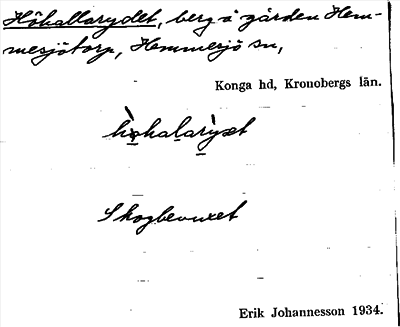 Höhallarydet, berg å gården Hem-
mesjötorp, Hemmesjö sn,
Konga hd, Kronobergs län.
Skogbevuxet
Erik Johannesson 1934.